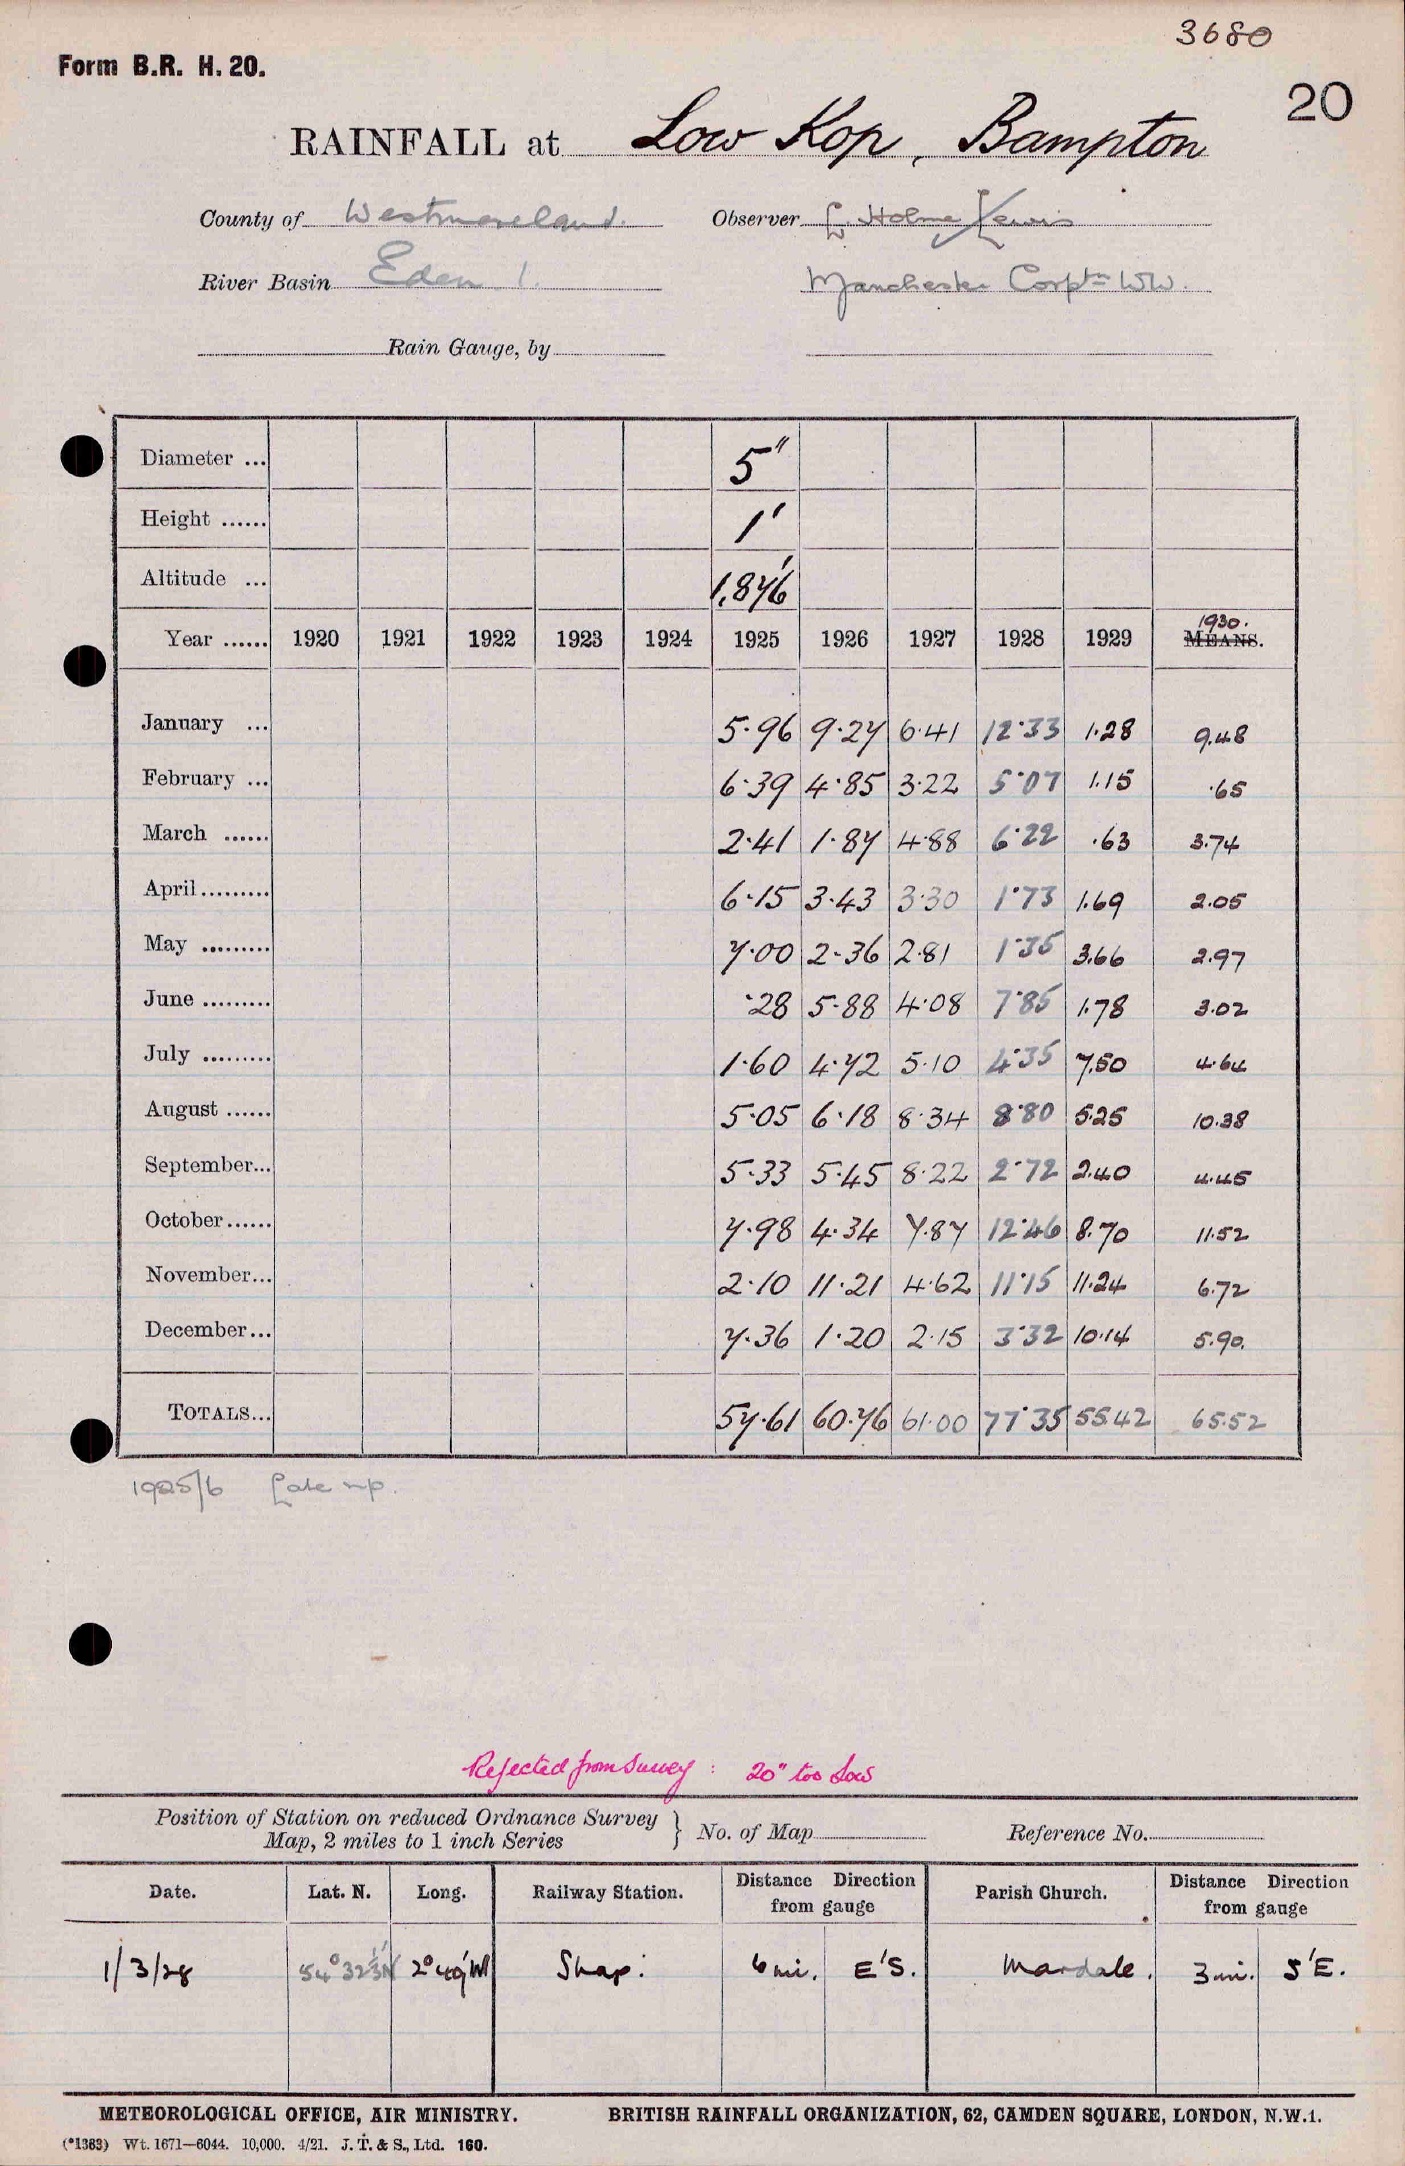 3680
Form B.R. H. 20.
20
RAINFALL at Low Kop, Bampton
County of Westmoreland. Observer L. Holme Lewis
River Basin Eden 1. Manchester Corptn WW.
Rain Gauge, by
Diameter ... 5"
Height ...... 1'
Altitude ... 1,876'
1930.
Year ...... 1920 1921 1922 1923 1924 1925 1926 1927 1928 1929 MEANS.
January ... 5.96 9.27 6.41 12.33 1.28 9.48
February ... 6.39 4.85 3.22 5.07 1.15 .65
March ...... 2.41 1.87 4.88 6.22 .63 3.74
April......... 6.15 3.43 3.30 1.73 1.69 2.05
May ......... 7.00 2.36 2.81 1.35 3.66 2.97
June ......... .28 5.88 4.08 7.85 1.78 3.02
July ......... 1.60 4.72 5.10 4.35 7.50 4.64
August ...... 5.05 6.18 8.34 8.80 5.25 10.38
September... 5.33 5.45 8.22 2.72 2.40 4.45
October...... 7.98 4.34 7.87 12.46 8.70 11.52
November... 2.10 11.21 4.62 11.15 11.24 6.72
December... 7.36 1.20 2.15 3.32 10.14 5.90.
TOTALS... 57.61 60.76 61.00 77.35 55.42 65.52
1925/6 Late
Rejected from Survey : 20" too Low
Position of Station on reduced Ordnance Survey
Map, 2 miles to 1 inch Series } No. of Map Reference No.
Date. Lat. N. Long. Railway Station. Distance Direction from gauge Parish Church. Distance Direction from gauge
1/3/28 54° 2° 49' W Shap. 6 mi. E'S. Mardale. 3 mi. S'E.
METEOROLOGICAL OFFICE, AIR MINISTRY. BRITISH RAINFALL ORGANIZATION, 62, CAMDEN SQUARE, LONDON, N.W.1.
(*1383) Wt. 1671—6044. 10,000. 4/21. J. T. & S., Ltd. 160.